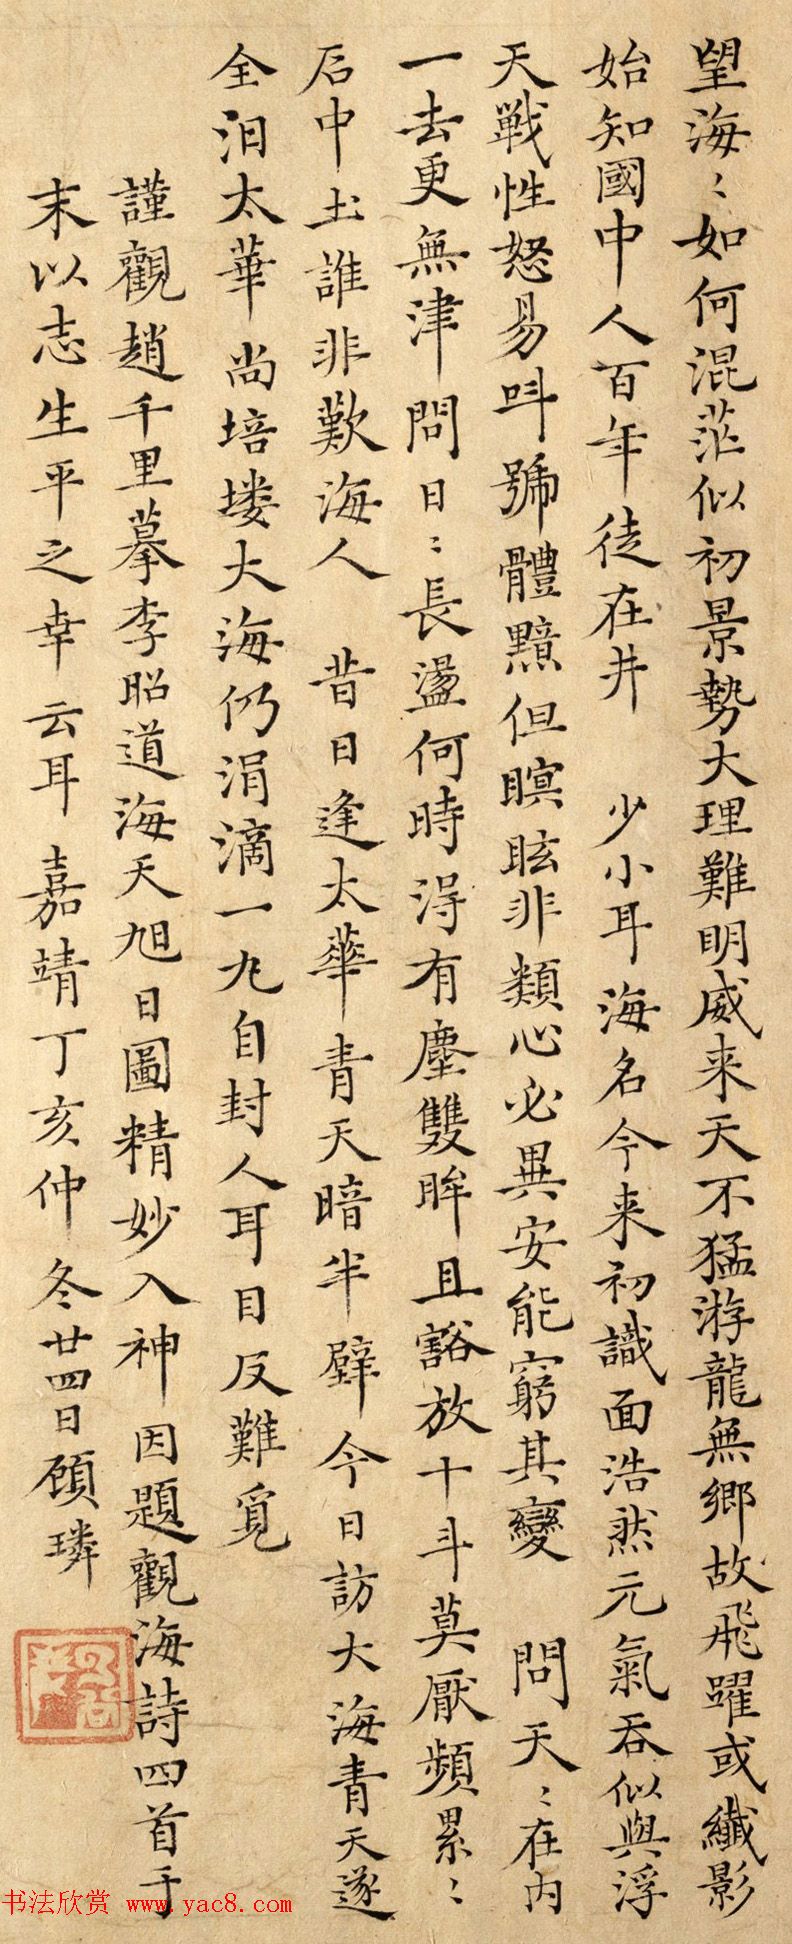 望海〻如何混茫似初景勢大理難明威来天不猛游龍無鄉故飛躍或纖影
始知國中人百年徒在井 少小耳海名今来初識面浩然元氣吞似與浮
天戰性怒易呌號體黯但瞑眩非類心必異安能窮其變 問天〻在内
一去更無津問日〻長盪何時淂有塵雙眸且豁放十斗莫厭頻累〻
后中土誰非歎海人 昔日逢太華青天暗半壁今日訪大海青天遂
全汨太華尚培塿大海仍涓滴一丸自封人耳目反難覓
謹觀趙千里摹李昭道海天旭日圖精妙入神因題觀海詩四首于
末以志生平之幸云耳嘉靖丁亥仲冬廿四日顧璘
书法欣赏 www.yac8.com